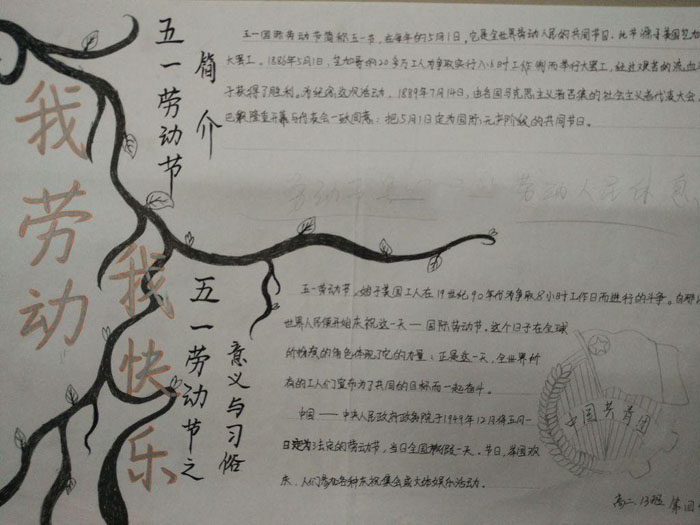 我劳动
我快乐
五一劳动节
简介
五一国际劳动节简称五一节，在每年的5月1日。它是全世界劳动人民的共同节日。此节源于美国芝加
大罢工。1886年5月1日，芝加哥的20多万工人为争取实行八小时工作制而举行大罢工，经过艰苦的流血
于获得了胜利。为纪念这次活动，1889年7月14日，由各国马克思主义者召集的社会主义者代表大会，
巴黎隆重开幕与代表会一致同意：把5月1日定为国际无产阶段的共同节日。
劳动 劳动人民休息
五一劳动节之
意义与习俗
五一劳动节，始于美国工人在19世纪90年代为争取8小时工作日而进行的斗争。自那
世界人民便开始庆祝这一天——国际劳动节。这个日子在全球
的角色体现了它的力量：正是这一天，全世界所
有的工人们宣布为了共同的目标而一起奋斗。
中国——中央人民政府政务院于1949年12月将五月一
日定为法定的劳动节。当日全国放假一天。节日，举国欢
庆，人们参加各种庆祝集会或文体娱乐活动。
中国共青团
高二13班